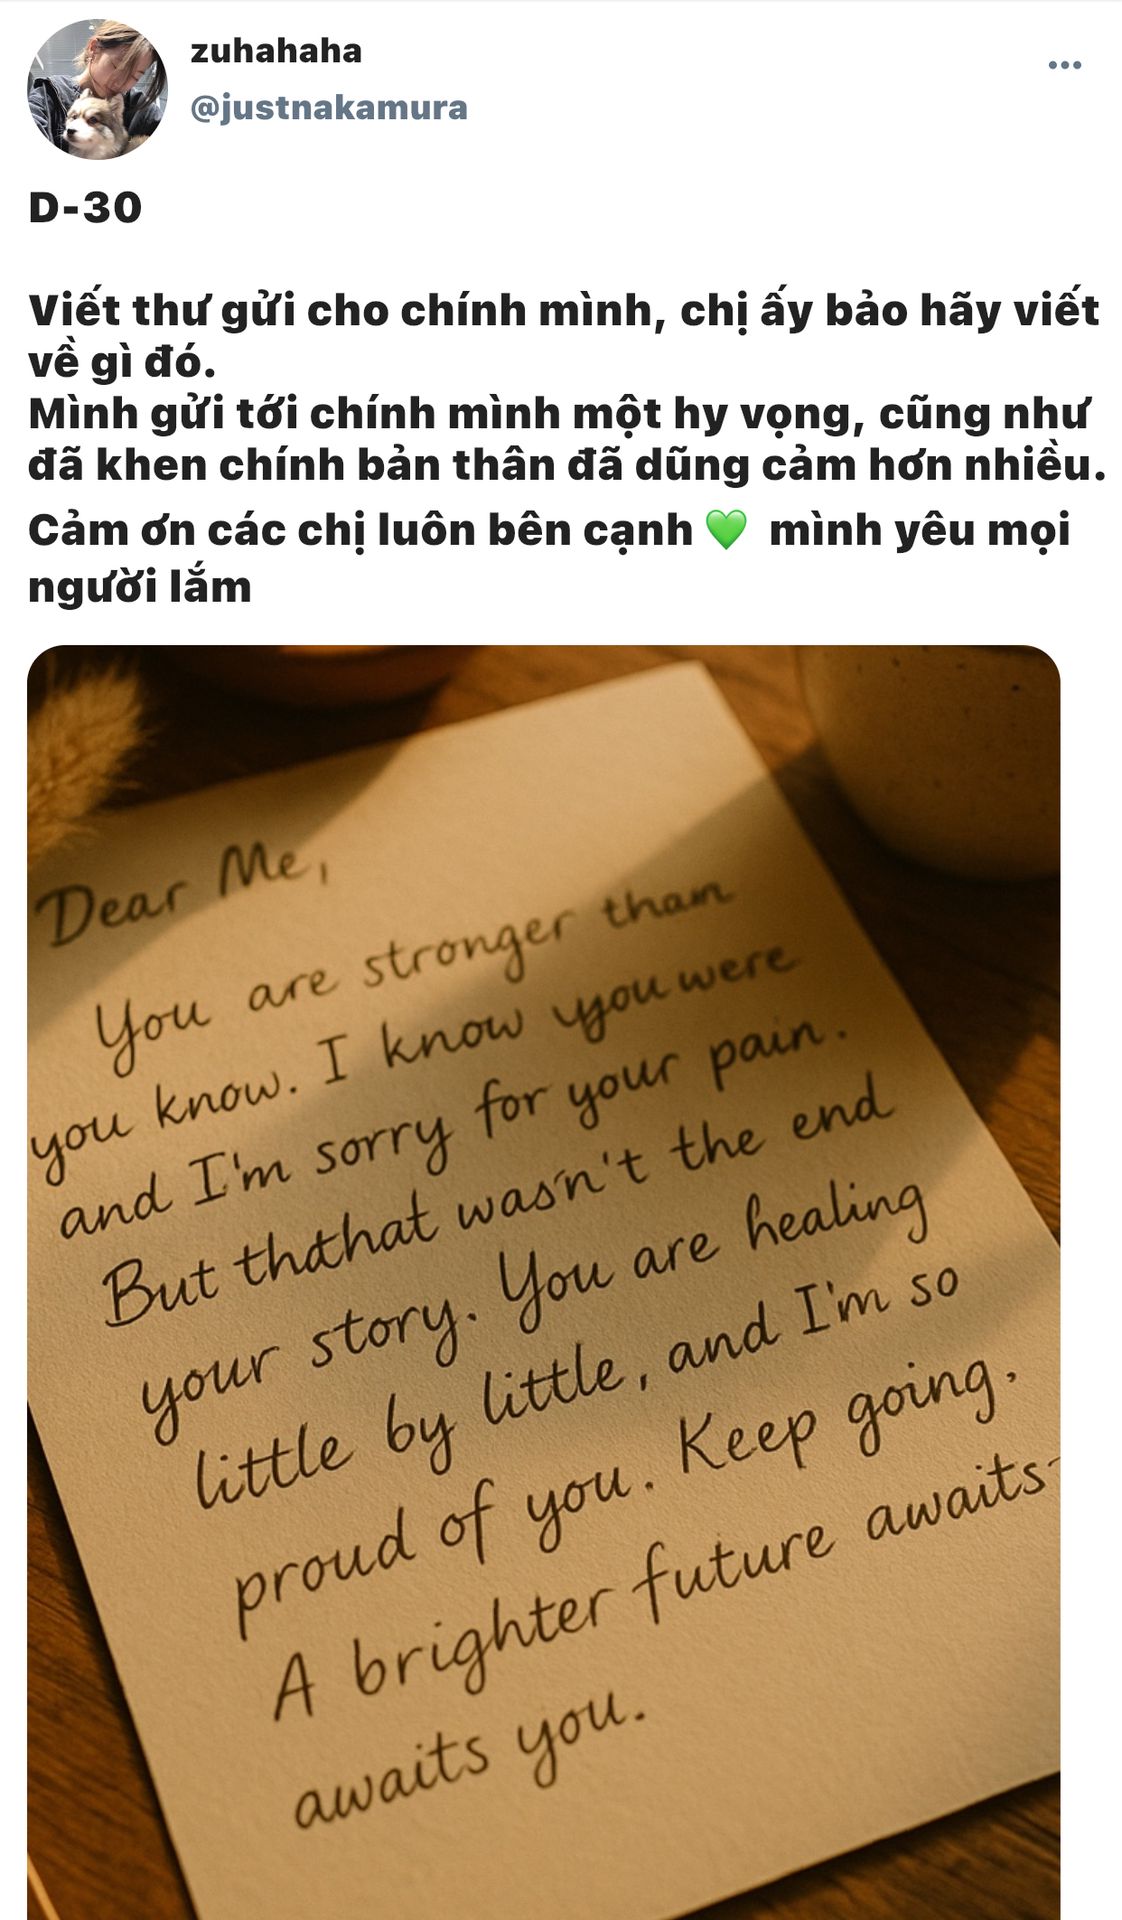 zuhahaha
@justnakamura
D-30
Viết thư gửi cho chính mình, chị ấy bảo hãy viết
về gì đó.
Mình gửi tới chính mình một hy vọng, cũng như
đã khen chính bản thân đã dũng cảm hơn nhiều.
Cảm ơn các chị luôn bên cạnh 💚 mình yêu mọi
người lắm
Dear Me,
You are stronger than
you know. I know you were
and I'm sorry for your pain.
But ththat wasn't the end
your story. You are healing
little by little, and I'm so
proud of you. Keep going.
A brighter future awaits
awaits you.